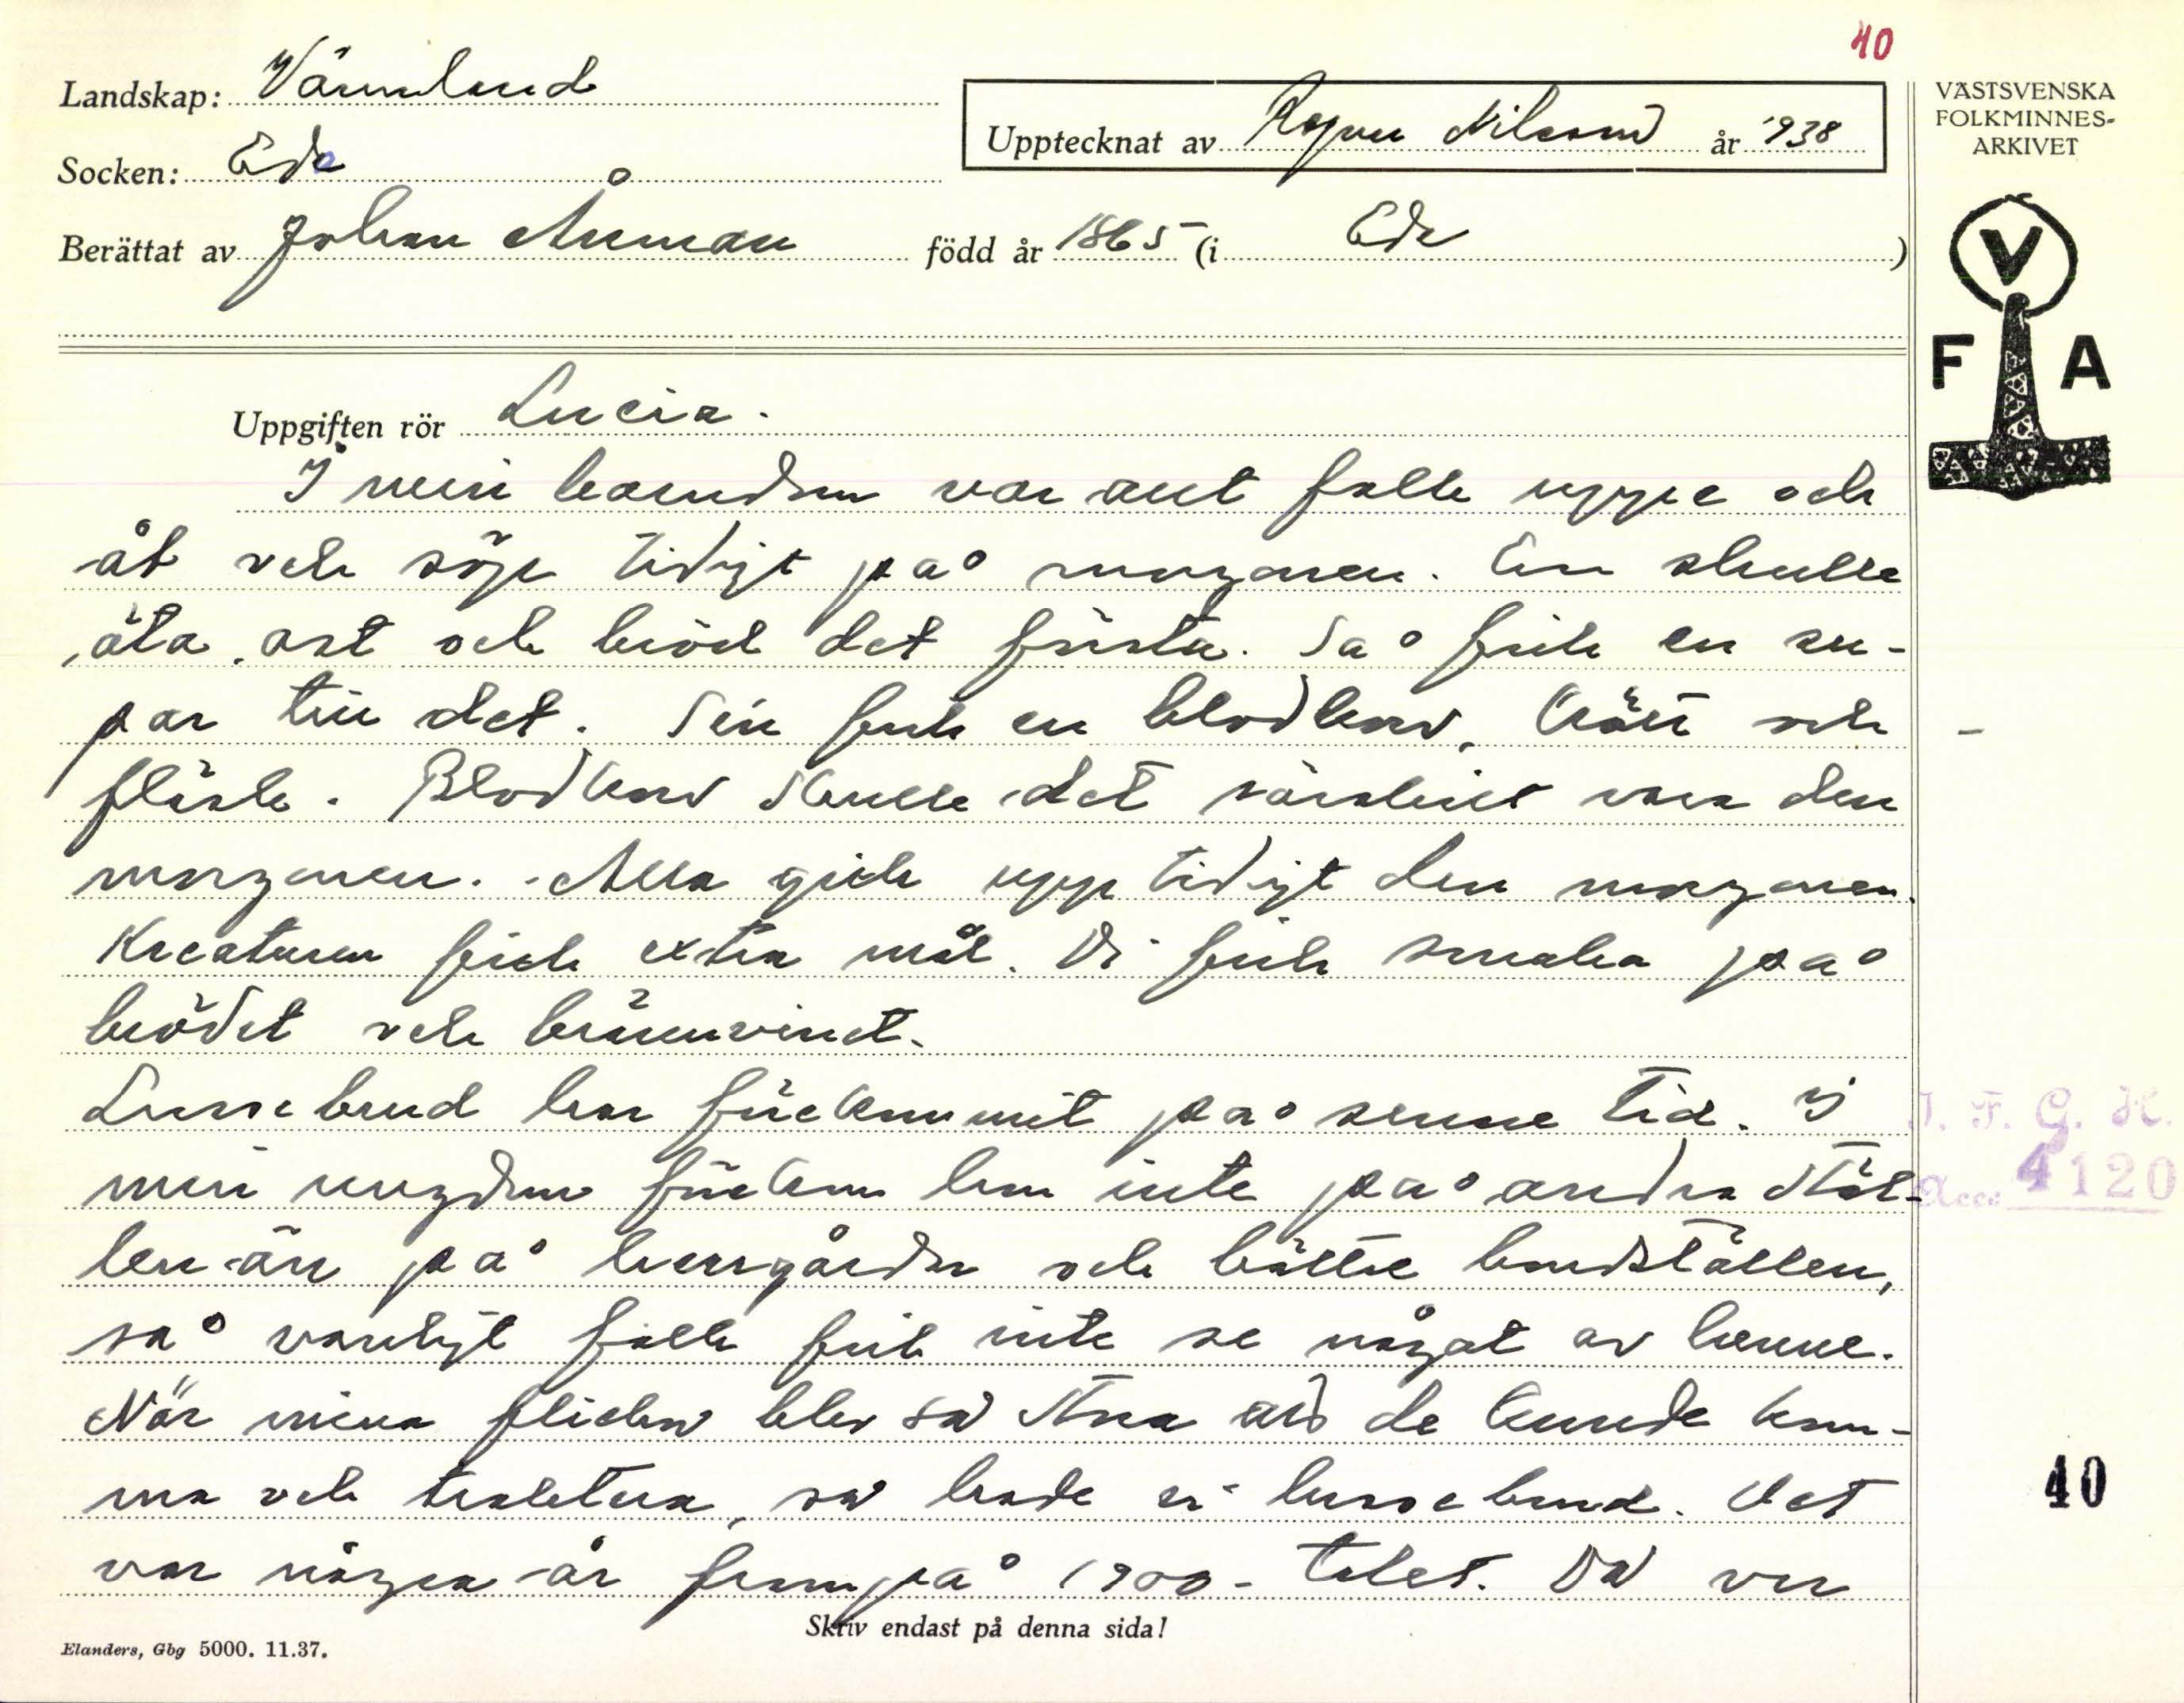 40
Landskap: Värmland
Upptecknat av Ragnar Nilsson år 1938
VÄSTSVENSKA
FOLKMINNES-
ARKIVET
Socken: Eda
Berättat av Johan Åmman född år 1865 (i Eda)
V
F A
Uppgiften rör Lucia.
I min barndom var allt folk uppe och
åt och söp tidigt på morgonen. En skulle
äta ost och bröd det första. Så fick en su-
par till det. Sen fick en blodkorv, kött och
fläsk. Blodkorv skulle det särskilt vara den
morgonen. Alla gick upp tidigt den morgonen.
Kreaturen fick extra mål. De fick smaka på
brödet och brännvinet.
Lussebrud har förekommit på senare tid. I
min ungdom förekom hon inte på andra stäl-
len än på herrgårdar och bättre bondställen,
så vanligt folk fick inte se något av henne.
När mina flickor blev så stora att de kunde kom-
ma och traktera, så hade vi lussebrud. Det
var några år fram på 1900-talet. Då var
I. F. G. H.
Acc: 4120
40
Skriv endast på denna sida!
Elanders, Gbg 5000. 11.37.